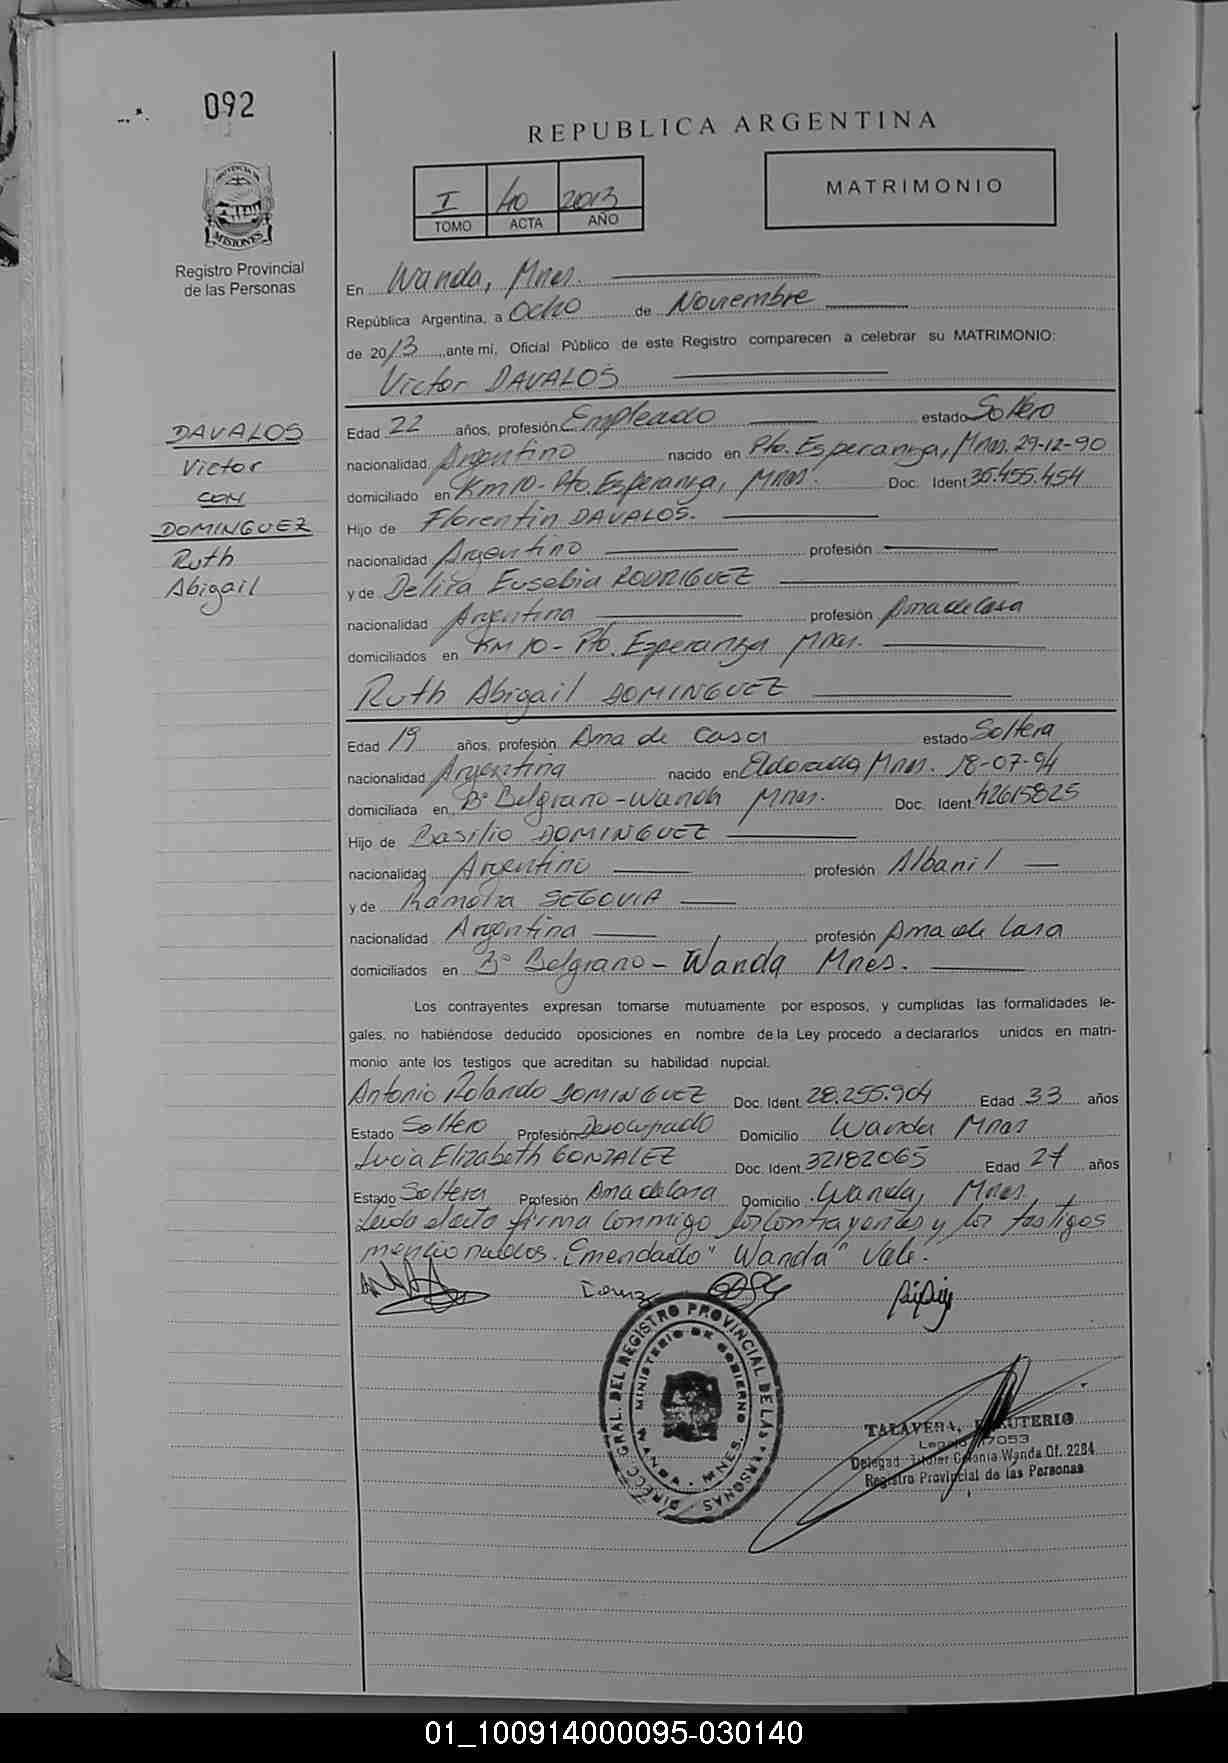 092
REPUBLICA ARGENTINA
I 40 2013
TOMO ACTA AÑO
MATRIMONIO
PROVINCIA DE
MISIONES
Registro Provincial
de las Personas
En Wanda, Mnes.
República Argentina, a Ocho de Noviembre
de 2013 ante mi, Oficial Público de este Registro comparecen a celebrar su MATRIMONIO:
Victor DAVALOS
DAVALOS
Victor
con
DOMINGUEZ
Ruth
Abigail
Edad 22 años, profesión Empleado estado Soltero
nacionalidad Argentino nacido en Pto. Esperanza, Mnes. 29-12-90
domiciliado en Km 10 - Pto. Esperanza, Mnes. Doc. Ident. 35.455.454
Hijo de Florentin DAVALOS.
nacionalidad Argentino profesión
y de Delira Eusebia RODRIGUEZ
nacionalidad Argentina profesión Ama de Casa
domiciliados en KM 10 - Pto. Esperanza Mnes.
Ruth Abigail DOMINGUEZ
Edad 19 años, profesión Ama de Casa estado Soltera
nacionalidad Argentina nacido en Eldorado, Mnes. 18-07-94
domiciliada en B° Belgrano - Wanda Mnes. Doc. Ident. 42615825
Hijo de Basilio DOMINGUEZ
nacionalidad Argentino profesión Albanil
y de Ramona SEGOVIA
nacionalidad Argentina profesión Ama de Casa
domiciliados en B° Belgrano - Wanda Mnes.
Los contrayentes expresan tomarse mutuamente por esposos, y cumplidas las formalidades le-
gales, no habiéndose deducido oposiciones en nombre de la Ley procedo a declararlos unidos en matri-
monio ante los testigos que acreditan su habilidad nupcial.
Antonio Rolando DOMINGUEZ Doc. Ident. 28.255.904 Edad 33 años
Estado Soltero Profesión Desocupado Domicilio Wanda Mnes
Lucia Elizabeth GONZALEZ Doc. Ident. 32182065 Edad 27 años
Estado Soltera Profesión Ama de Casa Domicilio Wanda, Mnes.
Leido el acto firma conmigo los contrayentes y los testigos
mencionados. Emendado "Wanda" Vale.
DIRECC. GRAL. DEL REGISTRO PROVINCIAL DE LAS PERSONAS
MINISTERIO DE GOBIERNO
WANDA - MNES.
TALAVERA, ELEUTERIO
Legajo 17053
Delegad Titular Colonia Wanda Of. 2284
Registro Provincial de las Personas
01_100914000095-030140